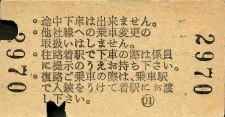 。途中下車は出来ません。
。他社線への乗車変更の
取扱いはしません。
。往路着駅で下車の際は係員
に提示のうえお持ち下さい。
。復路ご乗車の際は、乗車駅
で入鋏をうけて着駅にお渡
し下さい。
01
2970
2970